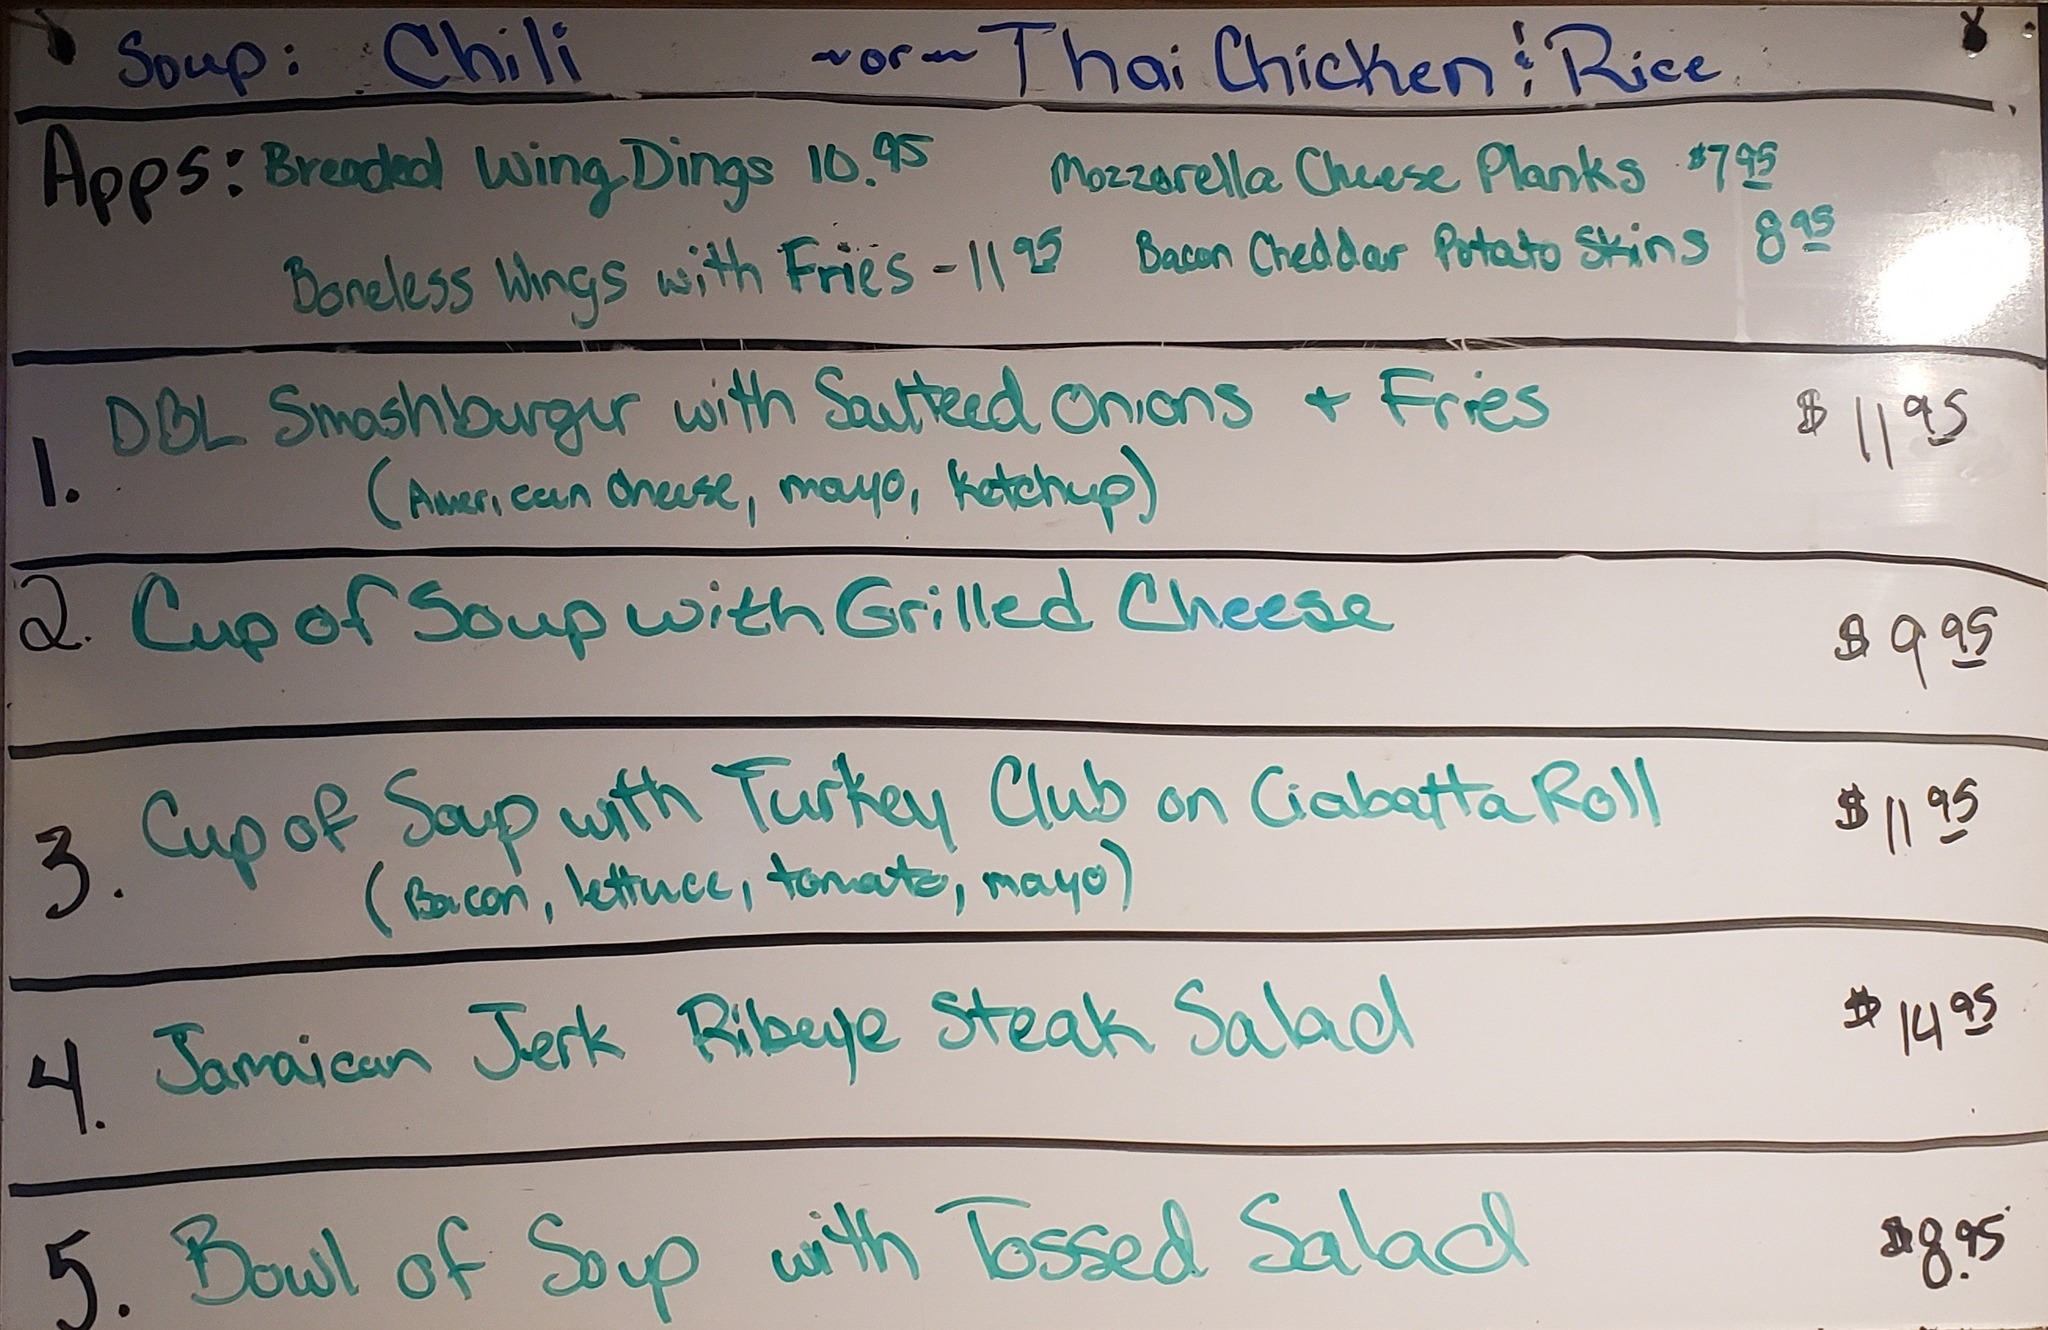 Soup: Chili ~or~ Thai Chicken & Rice
Apps: Breaded Wing Dings 10.95 Mozzarella Cheese Planks $7 95
Boneless Wings with Fries - 11 95 Bacon Cheddar Potato Skins 8 95
1. DBL Smashburger with Sauteed Onions + Fries $ 11 95
(American cheese, mayo, ketchup)
2. Cup of Soup with Grilled Cheese $ 9 95
3. Cup of Soup with Turkey Club on Ciabatta Roll $ 11 95
(Bacon, lettuce, tomato, mayo)
4. Jamaican Jerk Ribeye Steak Salad $ 14 95
5. Bowl of Soup with Tossed Salad $8.95